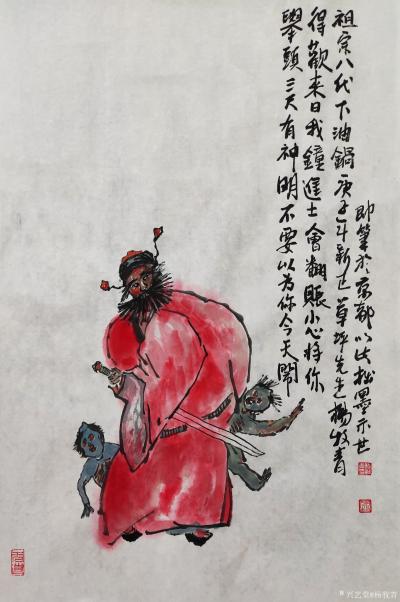 舉頭三尺有神明不要以為你今天鬧
得歡来日我鐘進士會翻賬小心将你
祖宗八代下油鍋庚子年新正草坪先生楊牧青
即筆於京都以此拙墨示世
兴艺堂@杨牧青